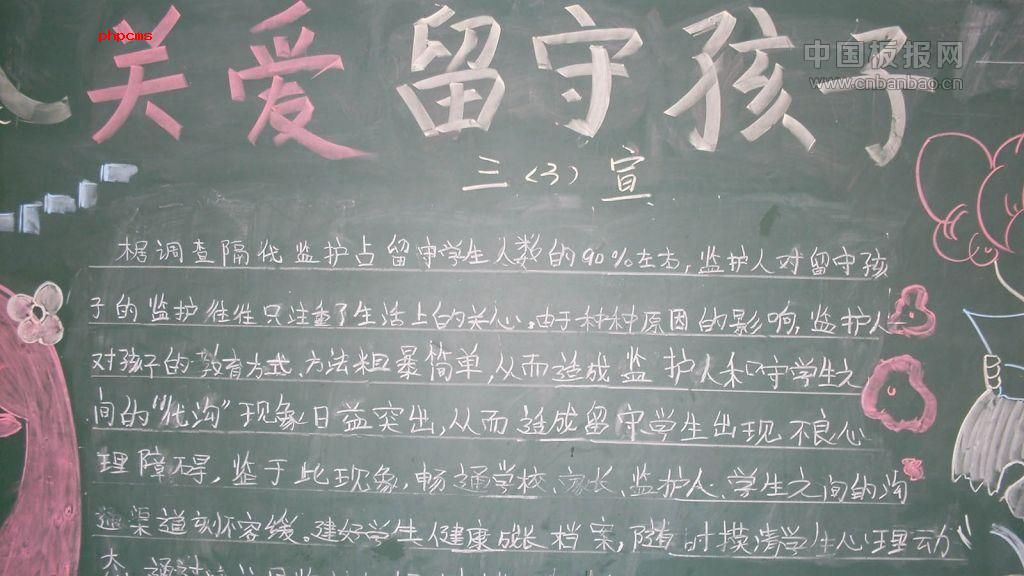 phpcms
中国板报网
www.cnbanbao.cn
关爱留守孩子
三（3）宣
据调查隔代监护占留守学生人数的90%左右,监护人对留守孩
子的监护往往只注重了生活上的关心。由于种种原因的影响,监护人
对孩子的教育方式、方法粗暴简单,从而造成监护人和守学生之
间的“代沟”现象日益突出,从而造成留守学生出现不良心
理障碍,鉴于此现象,畅通学校、家长、监护人、学生之间的沟
通渠道刻不容缓。建好学生健康成长档案,随时摸清学生心理动
态,通过